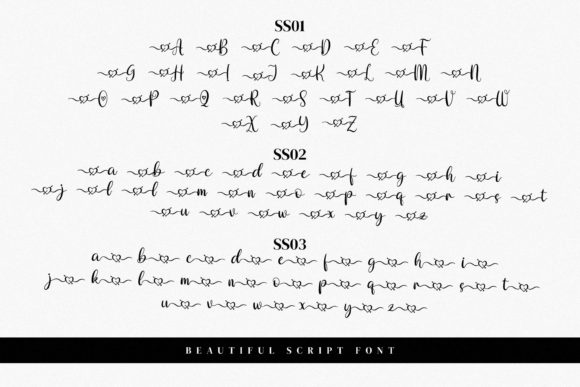 SS01
A B C D E F
G H I J K L M N
O P Q R S T U V W
X Y Z
SS02
a b c d e f g h i
j l l m n o p q r s t
u v w x y z
SS03
a b c d e f g h i
j k l m n o p q r s t
u v w x y z
BEAUTIFUL SCRIPT FONT